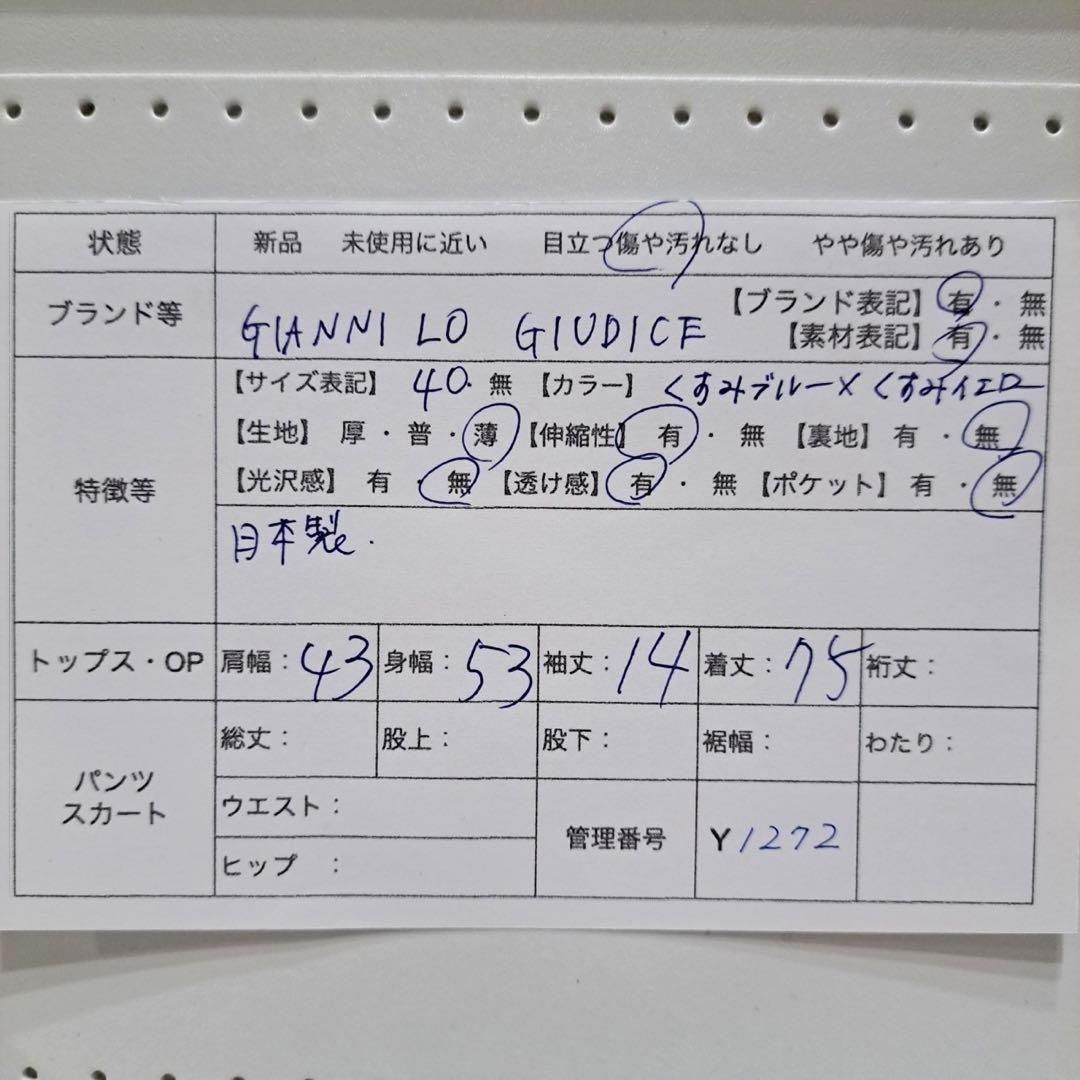 状態 新品 未使用に近い 目立つ傷や汚れなし やや傷や汚れあり
ブランド等 GIANNI LO GIUDICE 【ブランド表記】 有・無
【素材表記】 有・無
特徴等 【サイズ表記】 40・無 【カラー】 くすみブルー×くすみイエロー
【生地】 厚・普・薄 【伸縮性】 有・無 【裏地】 有・無
【光沢感】 有・無 【透け感】 有・無 【ポケット】 有・無
日本製.
トップス・OP 肩幅：43 身幅：53 袖丈：14 着丈：75 裄丈：
パンツ スカート 総丈： 股上： 股下： 裾幅： わたり：
ウエスト：
管理番号 Y1272
ヒップ ：